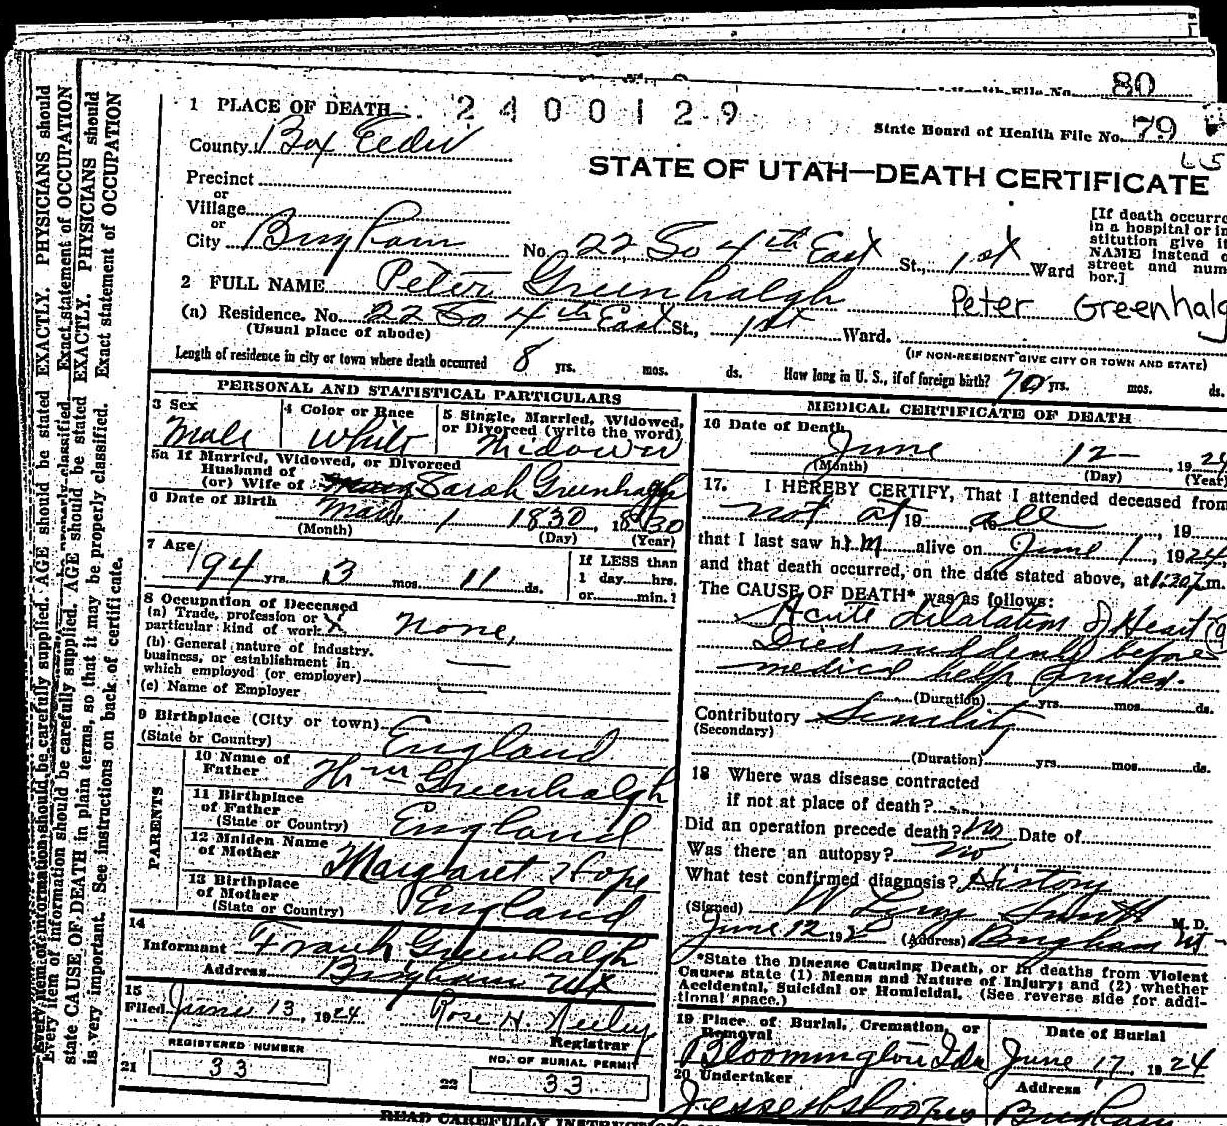 80
1 PLACE OF DEATH. 2400129
State Board of Health File No. 79
County Box Elder
STATE OF UTAH—DEATH CERTIFICATE
Precinct
or
Village
or
City Brigham No. 22 So 4th East St., 1st Ward
[If death occurre
in a hospital or in
stitution give it
NAME instead o
street and num
ber.]
2 FULL NAME Peter Greenhalgh
Peter Greenhalg
(a) Residence. No. 22 So 4th East St., 1st Ward.
(Usual place of abode)
(IF NON-RESIDENT GIVE CITY OR TOWN AND STATE)
Length of residence in city or town where death occurred 8 yrs. mos. ds. How long in U. S., if of foreign birth? 70 yrs. mos. ds.
PERSONAL AND STATISTICAL PARTICULARS
3 Sex
Male
4 Color or Race
White
5 Single, Married, Widowed,
or Divorced (write the word)
Widower
5a If Married, Widowed, or Divorced
Husband of
(or) Wife of Sarah Greenhalgh
6 Date of Birth Mar. 1 1830, 1830
(Month) (Day) (Year)
7 Age 94 yrs. 3 mos. 11 ds.
If LESS than
1 day......hrs.
or......min.?
8 Occupation of Deceased
(a) Trade, profession or
particular kind of work X none,
(b) General nature of industry,
business, or establishment in
which employed (or employer)
(c) Name of Employer
9 Birthplace (City or town)
(State or Country) England
PARENTS
10 Name of
Father Wm Greenhalgh
11 Birthplace
of Father
(State or Country) England
12 Maiden Name
of Mother Margaret Hope
13 Birthplace
of Mother
(State or Country) England
14
Informant Frank Greenhalgh
Address Brigham Ut
15
Filed June 13, 1924 Rose H. Neeley
Registrar
REGISTERED NUMBER
21 33
NO. OF BURIAL PERMIT
22 33
MEDICAL CERTIFICATE OF DEATH
16 Date of Death
June 12, 1924
(Month) (Day) (Year)
17. I HEREBY CERTIFY, That I attended deceased from
not at 19 all, 19
that I last saw him alive on June 1, 1924,
and that death occurred, on the date stated above, at 1:20 p m.
The CAUSE OF DEATH* was as follows:
Acute dilatation of Heart
Died suddenly before
medical help arrived.
(Duration) yrs. mos. ds.
Contributory Senility
(Secondary)
(Duration) yrs. mos. ds.
18 Where was disease contracted
if not at place of death?
Did an operation precede death? No Date of
Was there an autopsy? no
What test confirmed diagnosis? History
(Signed) W Smith M. D.
June 12 19 (Address) Brigham Ut
*State the Disease Causing Death, or in deaths from Violent
Causes state (1) Means and Nature of Injury; and (2) whether
Accidental, Suicidal or Homicidal. (See reverse side for addi-
tional space.)
19 Place of Burial, Cremation, or
Removal
Bloomington Ida
Date of Burial
June 17, 1924
20 Undertaker
Address
Brigham
READ CAREFULLY
Every item of information should be carefully supplied. AGE should be stated EXACTLY. PHYSICIANS should
state CAUSE OF DEATH in plain terms, so that it may be properly classified. Exact statement of OCCUPATION
is very important. See instructions on back of certificate.